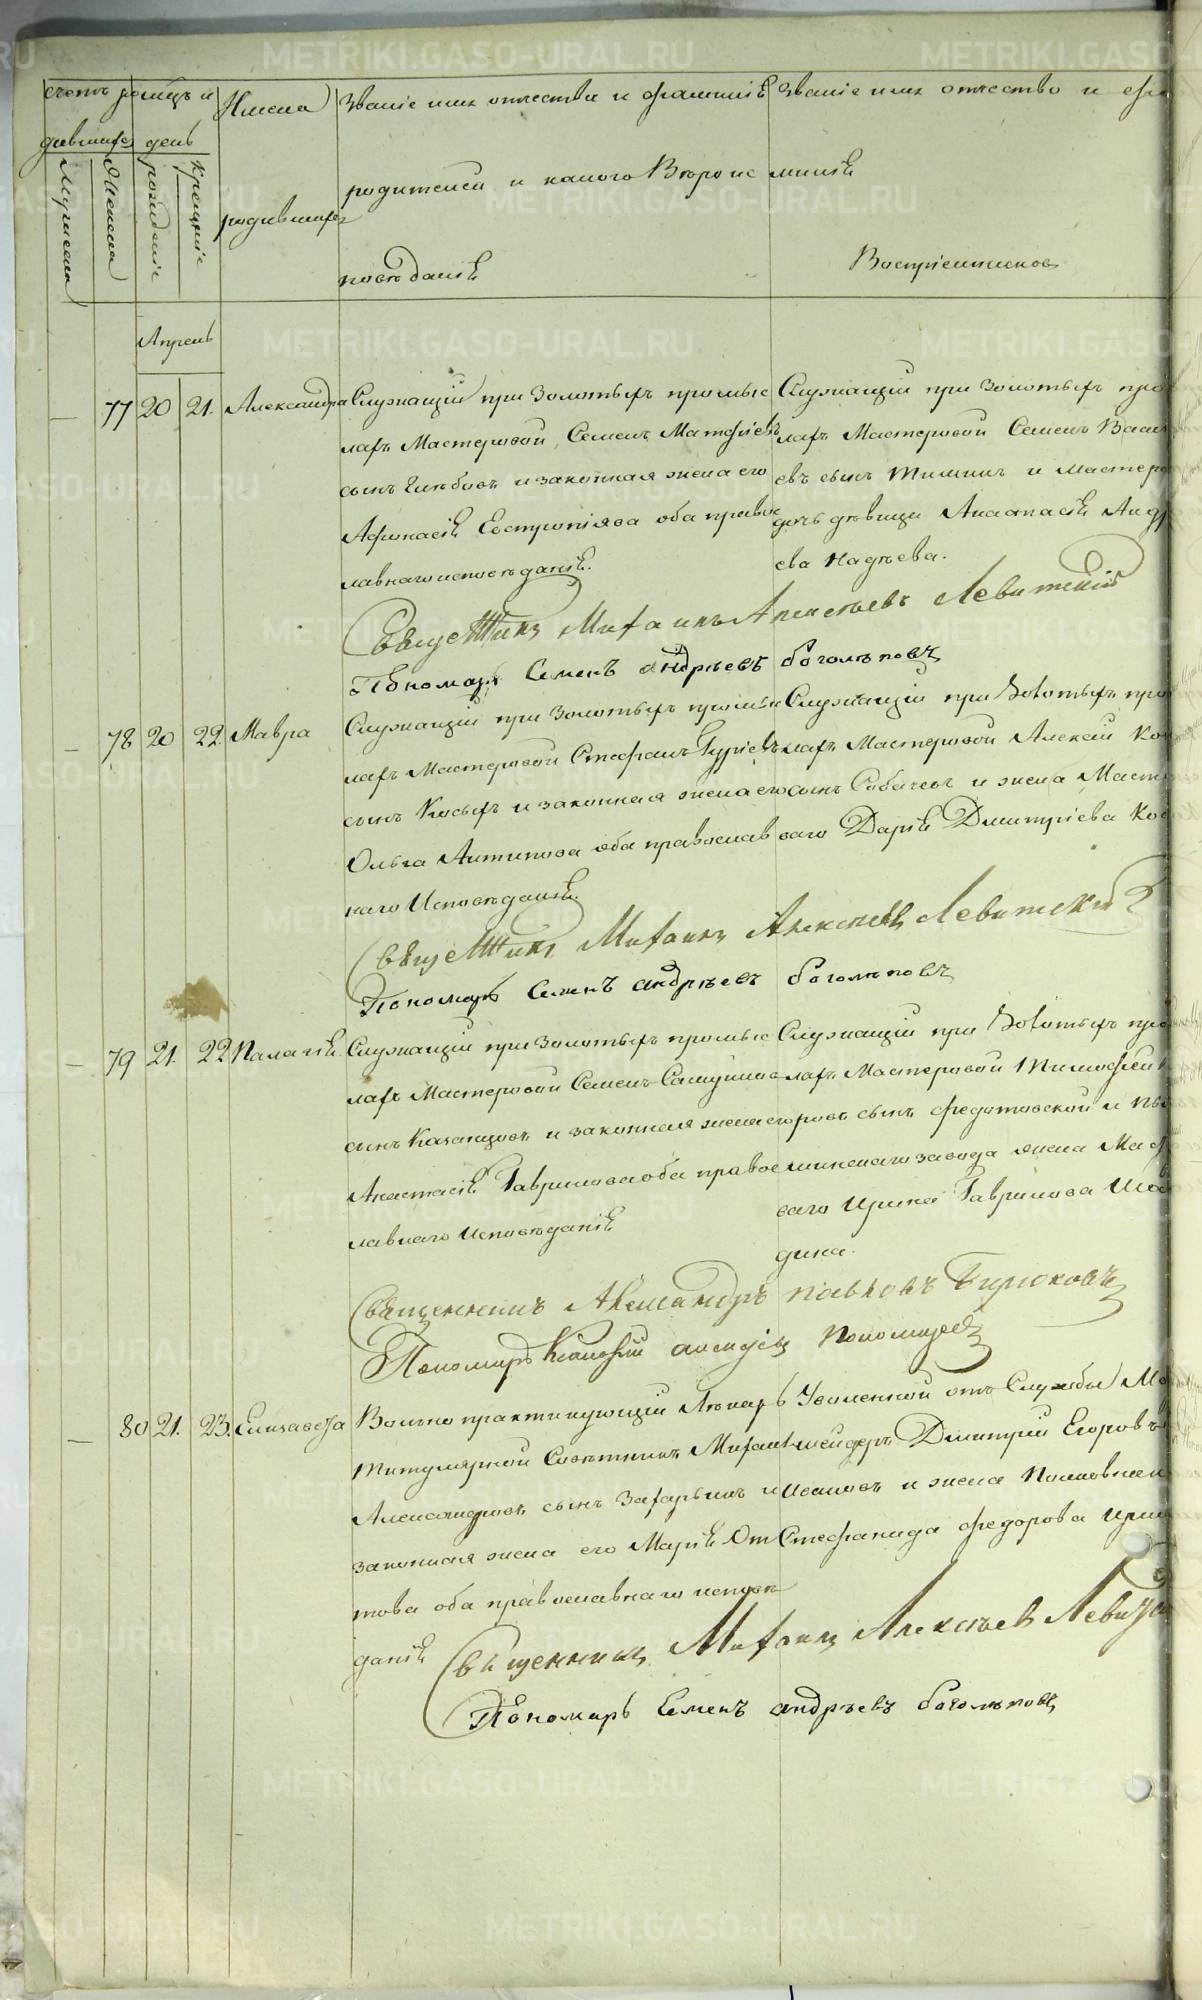 METRIKI.GASO-URAL.RU
счетъ родив месяцъ и Имена Званіе имя отчество и фамилія Званіе имя отчество и фа
дившихся день
родителей и какого Вѣроис миліи
родившихся
повѣданія Воспріемниковъ
Мужеска
Женска
рожденіе
крещеніе
Апрель
— 77 20 21. Александра Служащій при Золотыхъ промыс
лахъ Мастеровой Семенъ Матфіевъ
сынъ Глѣбовъ и законная жена его
Афонасія Евстропіява оба правос
лавнаго исповѣданія.
Служащій при Золотыхъ про
лахъ Мастеровой Семенъ Васил
евъ сынъ Тиминъ и мастеро
дочь дѣвица Анастасія Андр
ева Надѣева.
Священникъ Михаилъ Алексѣевъ Левитскій
Пономарь Семенъ андрѣевъ боголѣповъ
— 78 20 22 Мавра Служащій при Золотыхъ промыс
лахъ Мастеровой Стефанъ Гуріевъ
сынъ Косыхъ и законная жена его
Ольга Антипова оба православ
наго Исповѣданія.
Служащій при Золотыхъ про
лахъ Мастеровой Алексѣй Ко
сынъ Собачевъ и жена Масте
ваго Дарія Дмитріева Ко
Священникъ Михаилъ Алексѣевъ Левитскій
Пономарь Семенъ андрѣевъ боголѣповъ
— 79 21. 22 Палагія. Служащій при Золотыхъ промыс
лахъ Мастеровой Семенъ Самуиловъ
сынъ Казанцовъ и законная жена его
Анастасія Гаврилова оба правос
лавнаго Исповѣданія
Служащій при Золотыхъ про
лахъ Мастеровой Тимофей
горовъ сынъ Федотовской и
минскаго завода жена Мас
ваго Ирина Гаврилова
дина.
Священникъ Александръ Павловъ Бирюковъ
Пономарь Пономаревъ
— 80 21. 23. Елизавета Вольно практикующій Лѣкарь
титулярной Совѣтникъ Михаилъ
Александровъ сынъ Захарьинъ и
законная жена его Марія
това оба православнаго исповѣ
данія
Уволенной отъ Службы
мейстеръ Дмитрий Егоровъ
Ивановъ и жена Полковника
Стефанида Федорова
Священникъ Михаилъ Алексѣевъ
Пономарь Семенъ андрѣевъ боголѣповъ